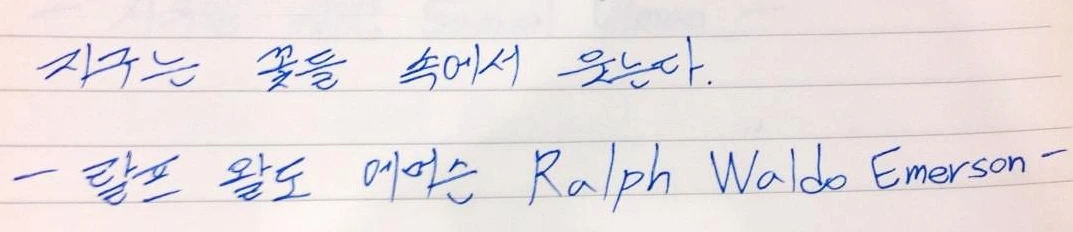 지구는 꽃들 속에서 웃는다.
- 랄프 왈도 에머슨 Ralph Waldo Emerson -